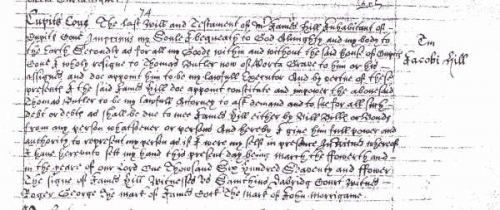 74
Cupits Cove The last Will and Testament of Mr James Hill Inhabitant of
Cupits Cove Imprimis my Soule I bequeath to God Almighty and my body to
the Earth Secondly as for all my Goods within and without the said house of Cupits
Cove I wholy resigne to Thomas Butler now of Porta Grave to him or his
Assignes and doe appoint him to be my lawfull Executor And by vertue of these
presents I the said James Hill doe appoint constitute and impower the abovesaid
Thomas Butler to be my lawfull Attorney to aske demand and to sue for all such
debt or debts as shall be due to mee James Hill either by Bill Bills or Bonds
from any person whatsoever or persons And hereby I give him full power and
authority to represent my person as if I were my selfe in presence In witnes whereof
I have hereunto sett my hand this present day being march the fowerth and
in the yeare of our Lord One Thousand Six Hundred Seaventy and fower
The signe of James Hill Witnesses us
Roger George The mark of James Cock The mark of John Morrigame
Tm
Jacobi Hill